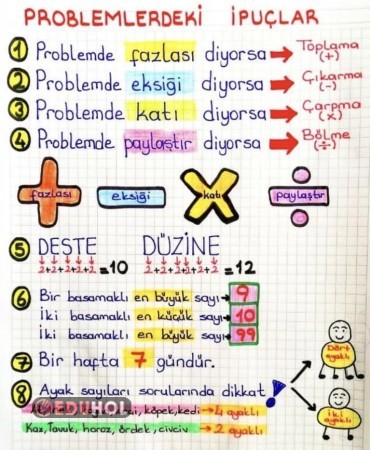 PROBLEMLERDEKİ İPUÇLAR
1 Problemde fazlası diyorsa → Toplama (+)
2 Problemde eksiği diyorsa → Çıkarma (-)
3 Problemde katı diyorsa → Çarpma (x)
4 Problemde paylaştır diyorsa → Bölme (÷)
fazlası eksiği katı paylaştır
5 DESTE DÜZİNE
2+2+2+2+2=10 2+2+2+2+2+2=12
6 Bir basamaklı en büyük sayı→ 9
İki basamaklı en küçük sayı→ 10
İki basamaklı en büyük sayı→ 99
7 Bir hafta 7 gündür.
8 Ayak sayıları sorularında dikkat !
Dört ayaklı
EDUHOL
köpek, kedi → 4 ayaklı
İki ayaklı
Kaz, Tavuk, horoz, ördek, civciv → 2 ayaklı